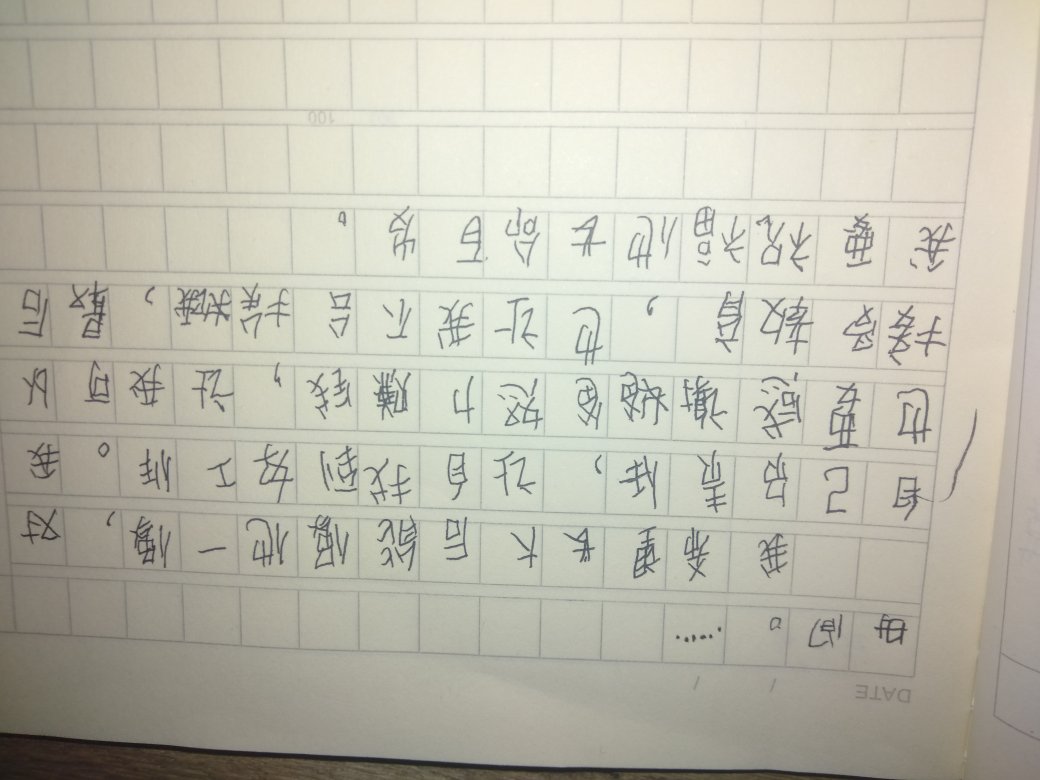 DATE / /
母们。……
我希望长大后能像他一像，对
自己负责任，让自找到好工作。我
也要感谢爸努力赚钱，让我可以
接受教育，也让我不会挨饿，最后
我要祝福他长命百岁。
100